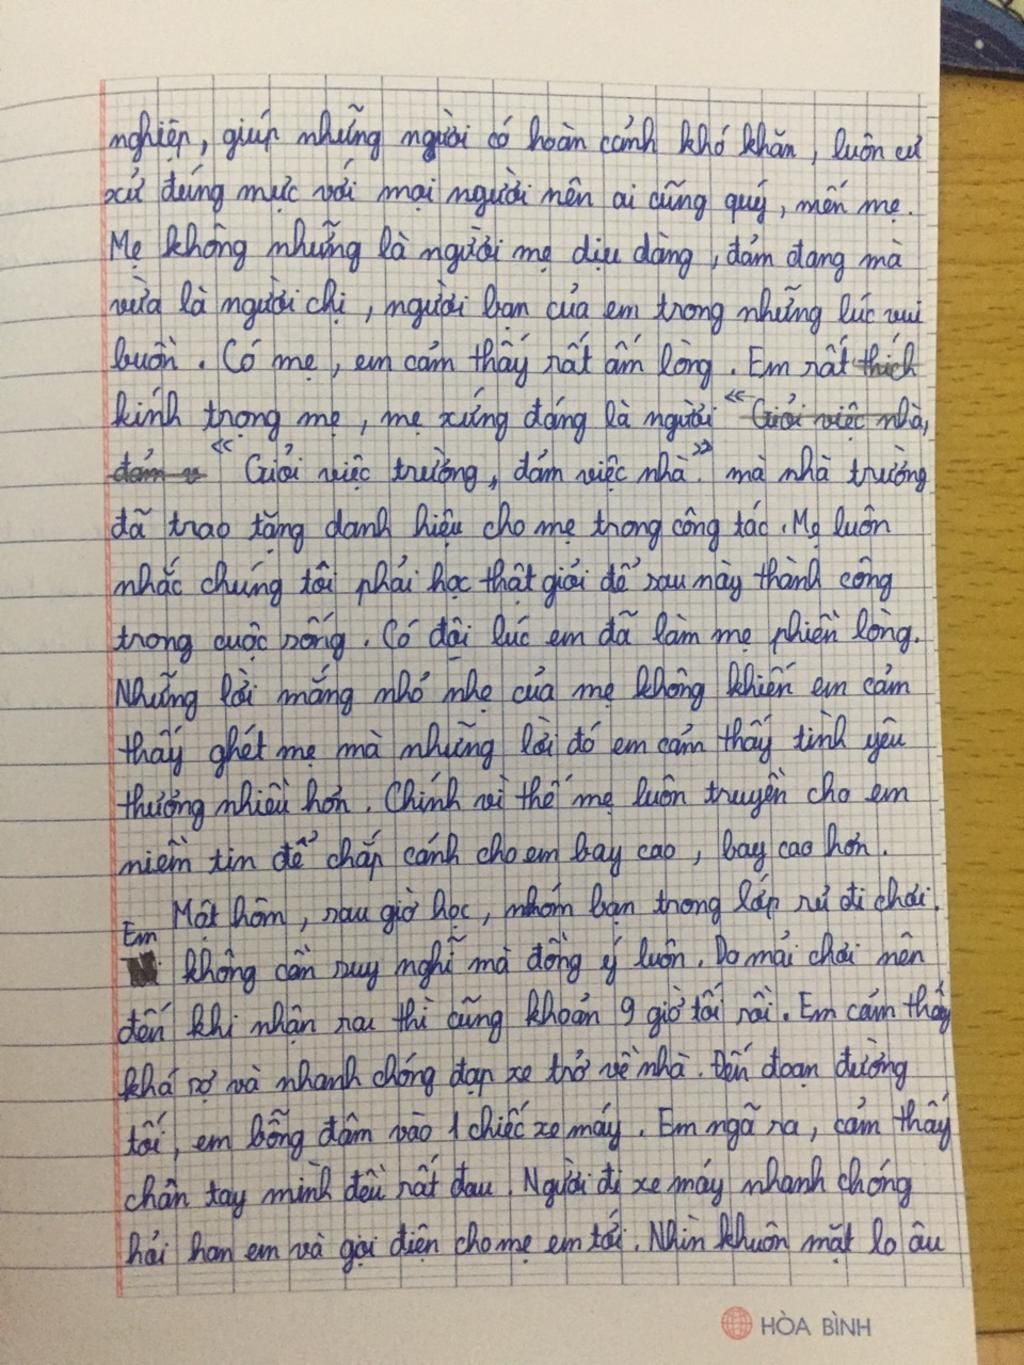 nghiệp, giúp những người có hoàn cảnh khó khăn, luôn cư
xử đúng mực với mọi người nên ai cũng quý, mến mẹ.
Mẹ không những là người mẹ dịu dàng, đảm đang mà
vừa là người chị, người bạn của em trong những lúc vui
buồn. Có mẹ, em cảm thấy rất ấm lòng. Em rất thích
kính trọng mẹ, mẹ xứng đáng là người "Giỏi việc nhà,
đảm v " Giỏi việc trường, đảm việc nhà" mà nhà trường
đã trao tặng danh hiệu cho mẹ trong công tác. Mẹ luôn
nhắc chúng tôi phải học thật giỏi để sau này thành công
trong cuộc sống. Có đôi lúc em đã làm mẹ phiền lòng.
Những lời mắng nhỏ nhẹ của mẹ không khiến em cảm
thấy ghét mẹ mà những lời đó em cảm thấy tình yêu
thương nhiều hơn. Chính vì thế mẹ luôn truyền cho em
niềm tin để chắp cánh cho em bay cao, bay cao hơn.
Một hôm, sau giờ học, nhóm bạn trong lớp rủ đi chơi.
Em không cần suy nghĩ mà đồng ý luôn. Do mải chơi nên
đến khi nhận rau thì cũng khoản 9 giờ tối rồi. Em cảm thấy
khá sợ và nhanh chóng đạp xe trở về nhà. Đến đoạn đường
tối, em bỗng đâm vào 1 chiếc xe máy. Em ngã ra, cảm thấy
chân tay mình đều rất đau. Người đi xe máy nhanh chóng
hải han em và gọi điện cho mẹ em tới. Nhìn khuôn mặt lo âu
HÒA BÌNH